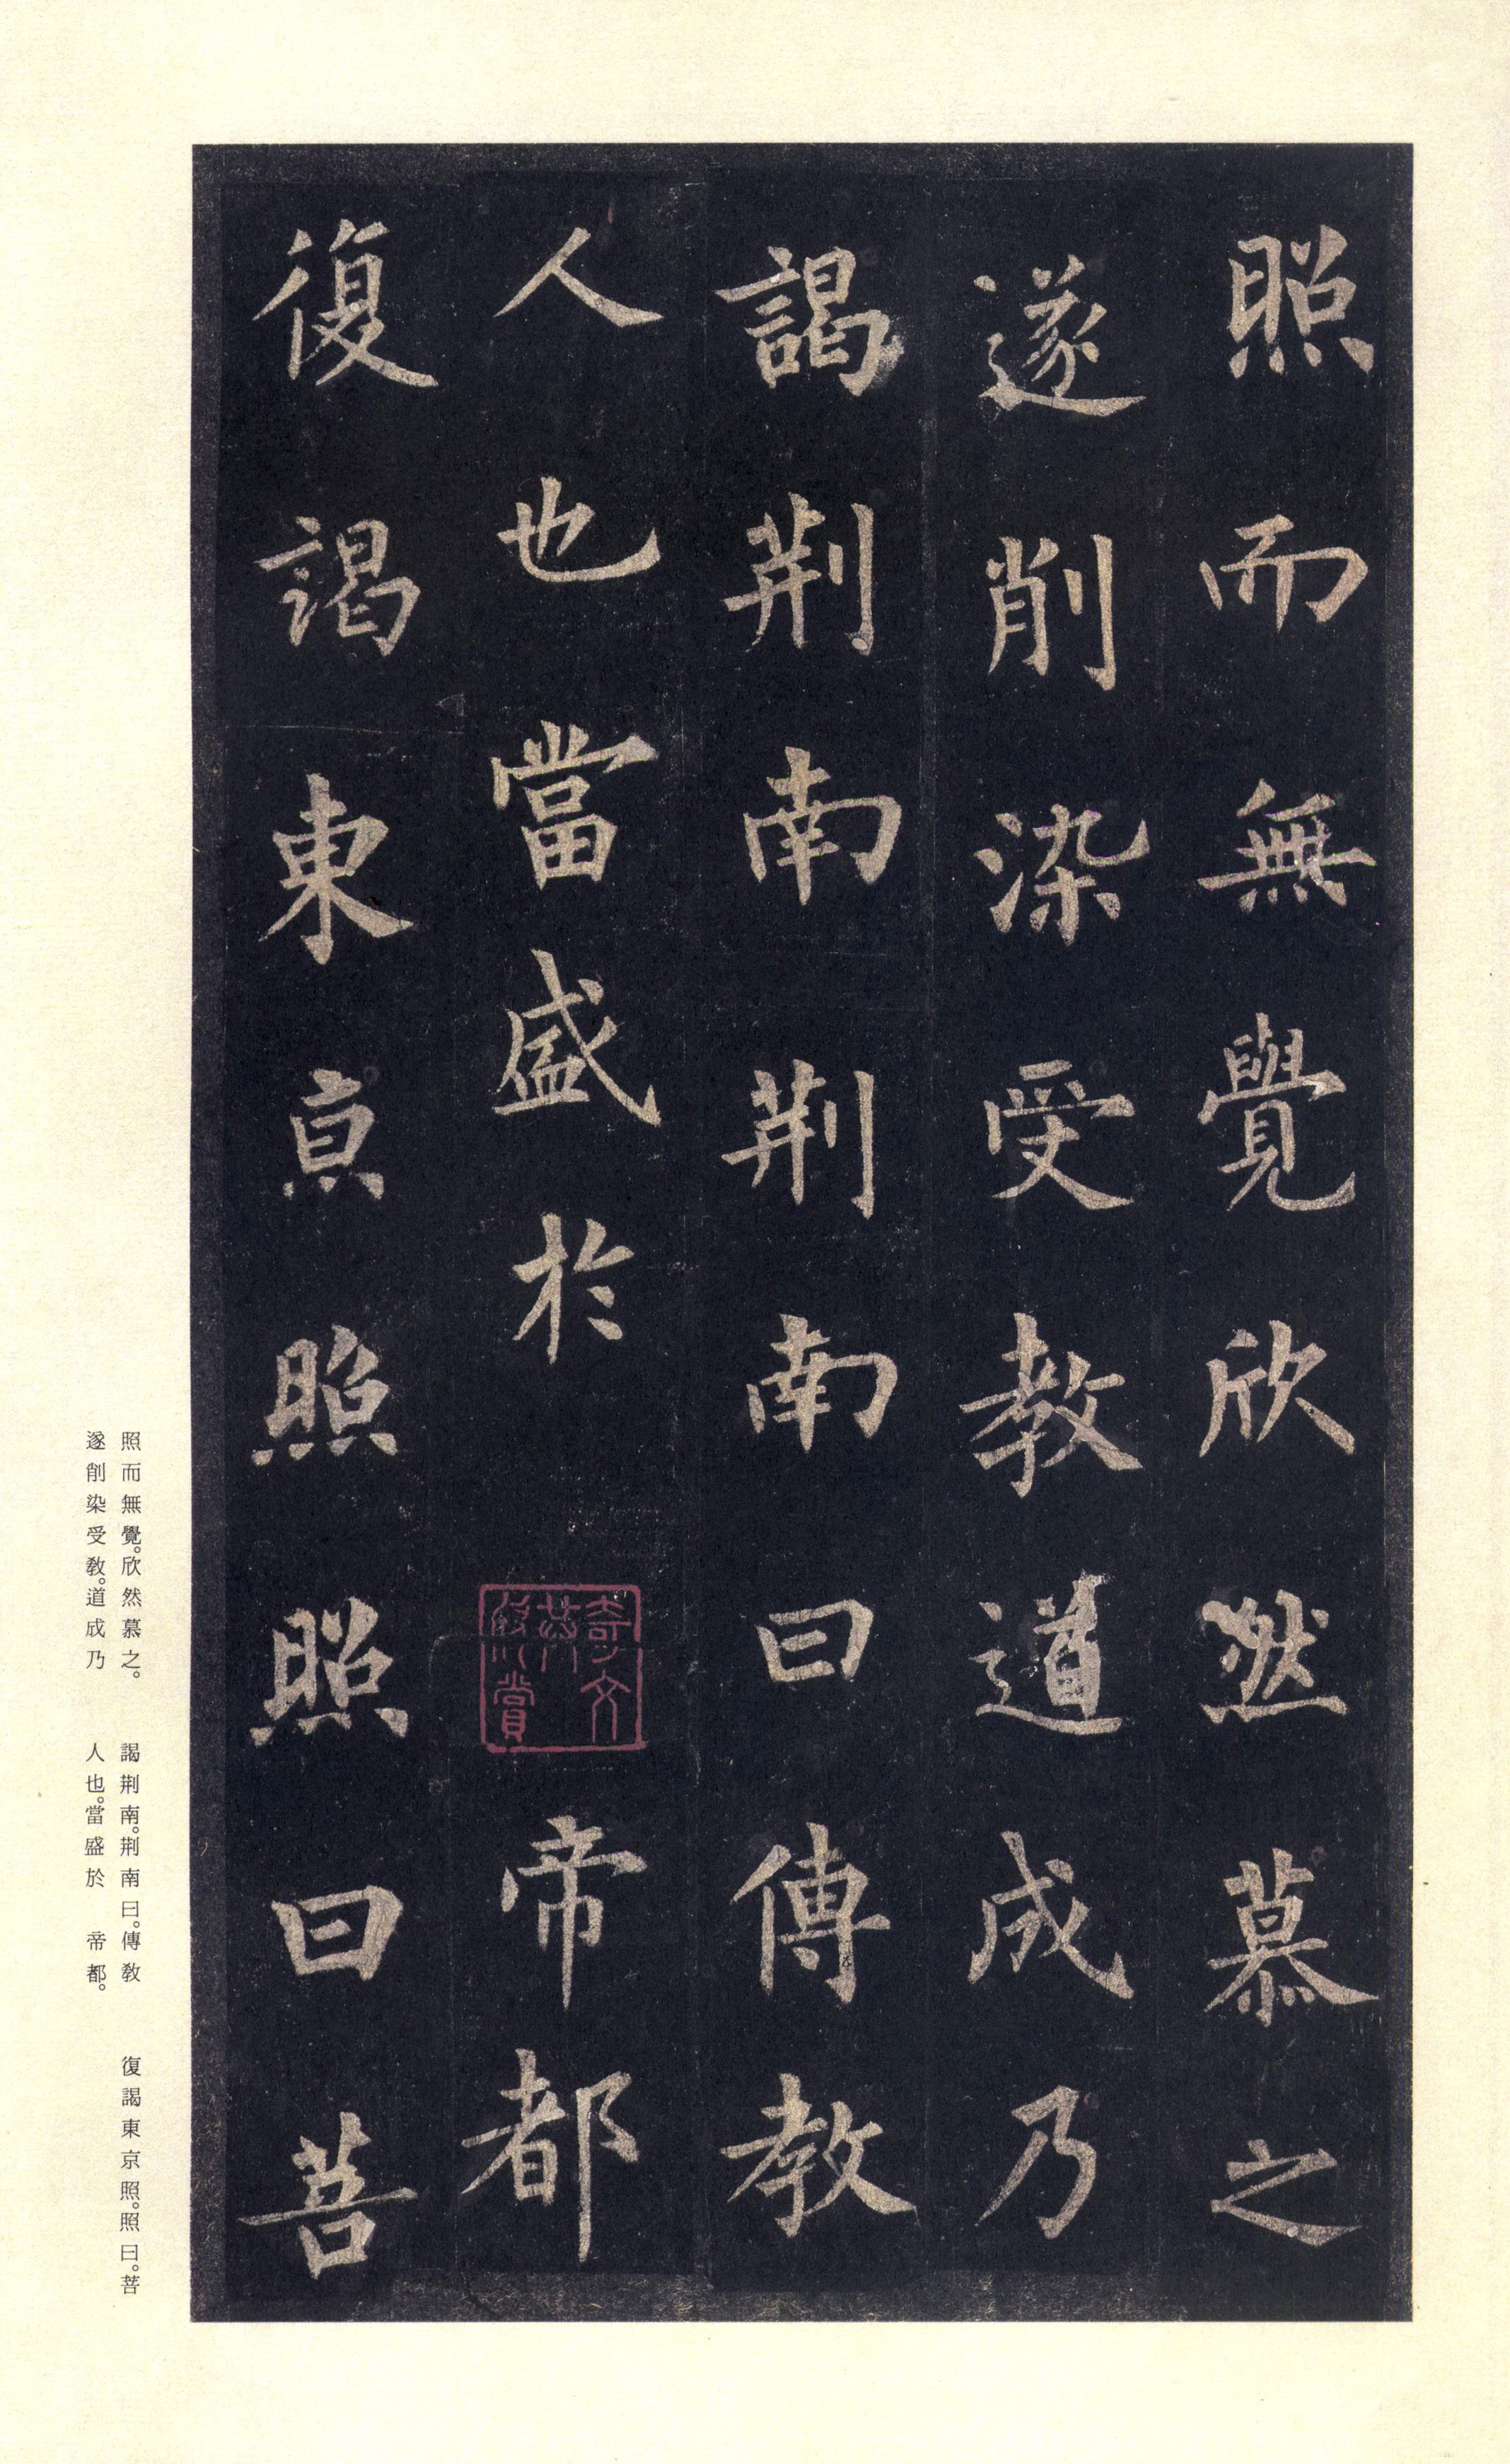 照而無覺欣然慕之
遂削染受教道成乃
謁荆南荆南曰傳教
人也當盛於 帝都
復謁東京照照曰菩
奇文
共欣賞
照而無覺。欣然慕之。 謁荆南。荆南曰。傳教 復謁東京照。照曰。菩
遂削染受教。道成乃 人也。當盛於 帝都。